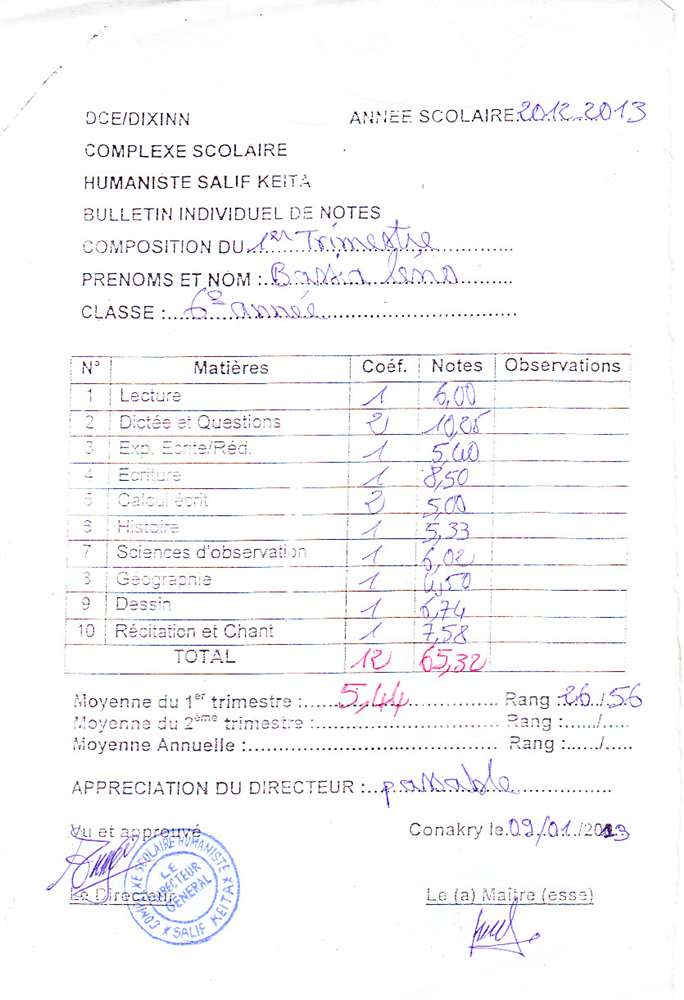 DCE/DIXINN ANNEE SCOLAIRE:2012.2013
COMPLEXE SCOLAIRE
HUMANISTE SALIF KEITA
BULLETIN INDIVIDUEL DE NOTES
COMPOSITION DU 1er Trimestre
PRENOMS ET NOM :
CLASSE : 6e année
N° Matières Coéf. Notes Observations
1 Lecture 1 6,00
2 Dictée et Questions 2 10,25
3 Exp. Ecrite/Réd. 1 5,40
4 Ecriture 1 8,50
5 Calcul écrit 2 5,00
6 Histoire 1 5,33
7 Sciences d'observation 1 6,02
8 Géographie 1 4,50
9 Dessin 1 6,74
10 Récitation et Chant 1 7,58
TOTAL 12 65,32
Moyenne du 1er trimestre : 5,44 Rang : 26/56
Moyenne du 2ème trimestre : Rang :....../.....
Moyenne Annuelle : Rang :....../.....
APPRECIATION DU DIRECTEUR : passable
Vu et approuvé Conakry le 09/01/2013
Le Directeur Le (a) Maître (esse)
COMPLEXE SCOLAIRE HUMANISTE
SALIF KEITA
LE DIRECTEUR GENERAL